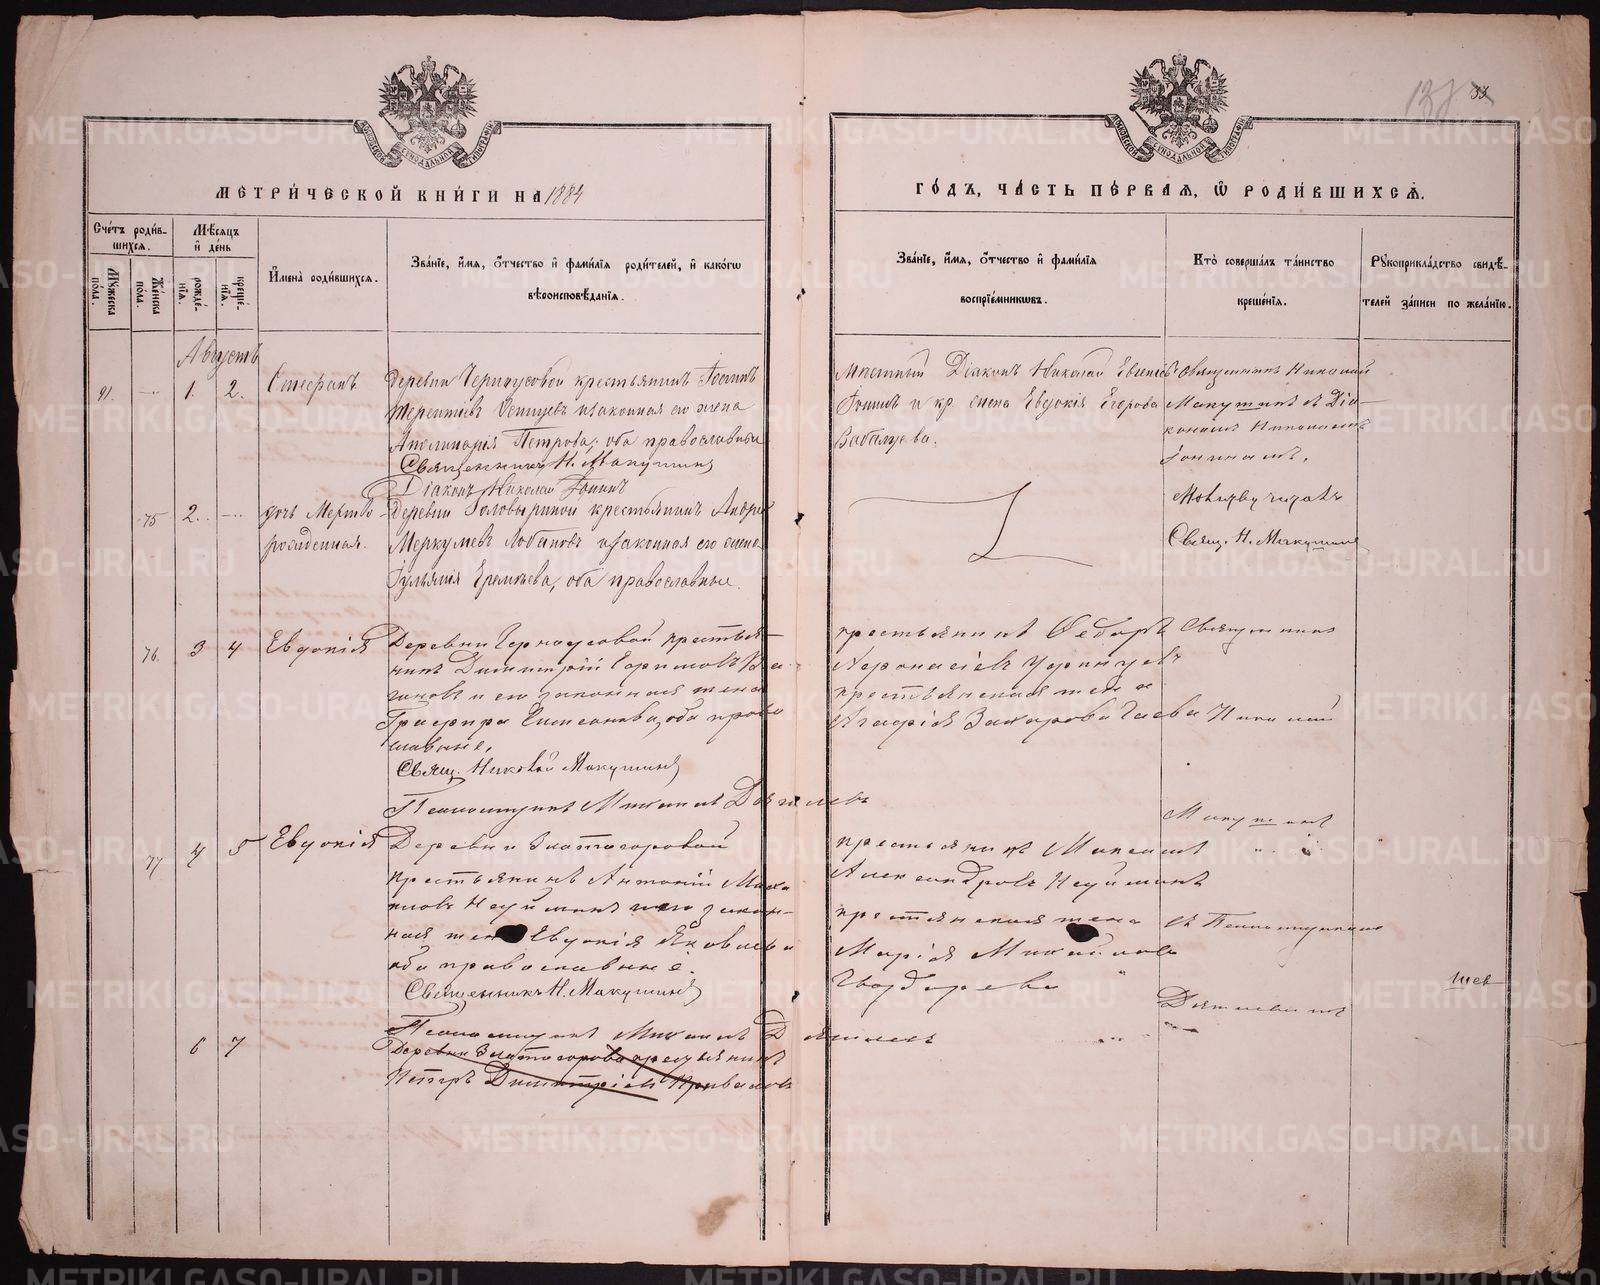 МЕТРИЧЕСКОЙ КНИГИ НА 1884
ГОДЪ, ЧАСТЬ ПЕРВАЯ, Ѡ РОДИВШИХСЯ.
33
Счетъ родив-
шихся.
Мѣсяцъ
и день
Мужеска
пола.
Женска
пола.
рожде-
нїя.
креще-
нїя.
Имена родившихся.
Званїе, имя, отчество и фамилїя родителей, и какогѡ
вѣроисповѣданїя.
Званїе, имя, отчество и фамилїя
воспрїемникѡвъ.
Кто совершалъ таинство
крещенїя.
Рукоприкладство свидѣ-
телей записи по желанїю.
Августъ
91. 1. 2. Стефанъ
Деревни Черноусовой крестьянинъ Іоаннъ
Терентіевъ и законная его жена
Аполинарія Петрова, оба православные
Священникъ Н. Макушинъ
Діаконъ Николай Іонинъ
Мѣстный Діаконъ Николай
Іонинъ и кр. жена Евдокія Егорова
Священникъ Николай
Макушинъ съ Діа-
кономъ Николаемъ
Іонинымъ.
75 2. дочь Мертво-
рожденная.
Деревни Головыриной крестьянинъ Андрей
Меркурьевъ Лобановъ и законная его жена
Іульянія Еремѣева, оба православные.
Свящ. Н. Макушинъ
76. 3 4 Евдокія
Деревни Черноусовой крестья-
нинъ Димитрій
и его законная жена
оба право-
славные.
Свящ. Николай Макушинъ
Псаломщикъ Михаилъ
крестьянинъ Ѳедоръ
крестьянская жена
Захарова
Священникъ
Николай
Макушинъ
77 4 5 Евдокія
Деревни Златогоровой
крестьянинъ Антоній Миха-
иловъ и его закон-
ная жена Евдокія Яковлева
оба православные.
Священникъ Н. Макушинъ
Псаломщикъ Михаилъ
крестьянинъ Максимъ
Александровъ
крестьянская жена
Марія Михайлова
Гвоздырева
съ Псаломщикомъ
6 7
Деревни Златогоровой крестьянинъ
Петръ Димитріевъ Приваловъ
METRIKI.GASO-URAL.RU